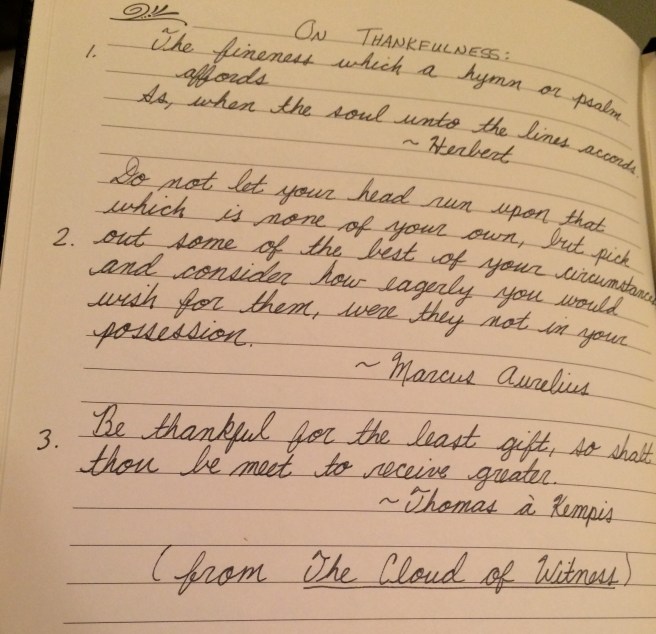 ON THANKFULNESS:
1. The fineness which a hymn or psalm
affords
Is, when the soul unto the lines accords.
~ Herbert
Do not let your head run upon that
which is none of your own, but pick
2. out some of the best of your circumstances
and consider how eagerly you would
wish for them, were they not in your
possession.
~ Marcus Aurelius
3. Be thankful for the least gift, so shalt
thou be meet to receive greater.
~ Thomas à Kempis
(from The Cloud of Witness)